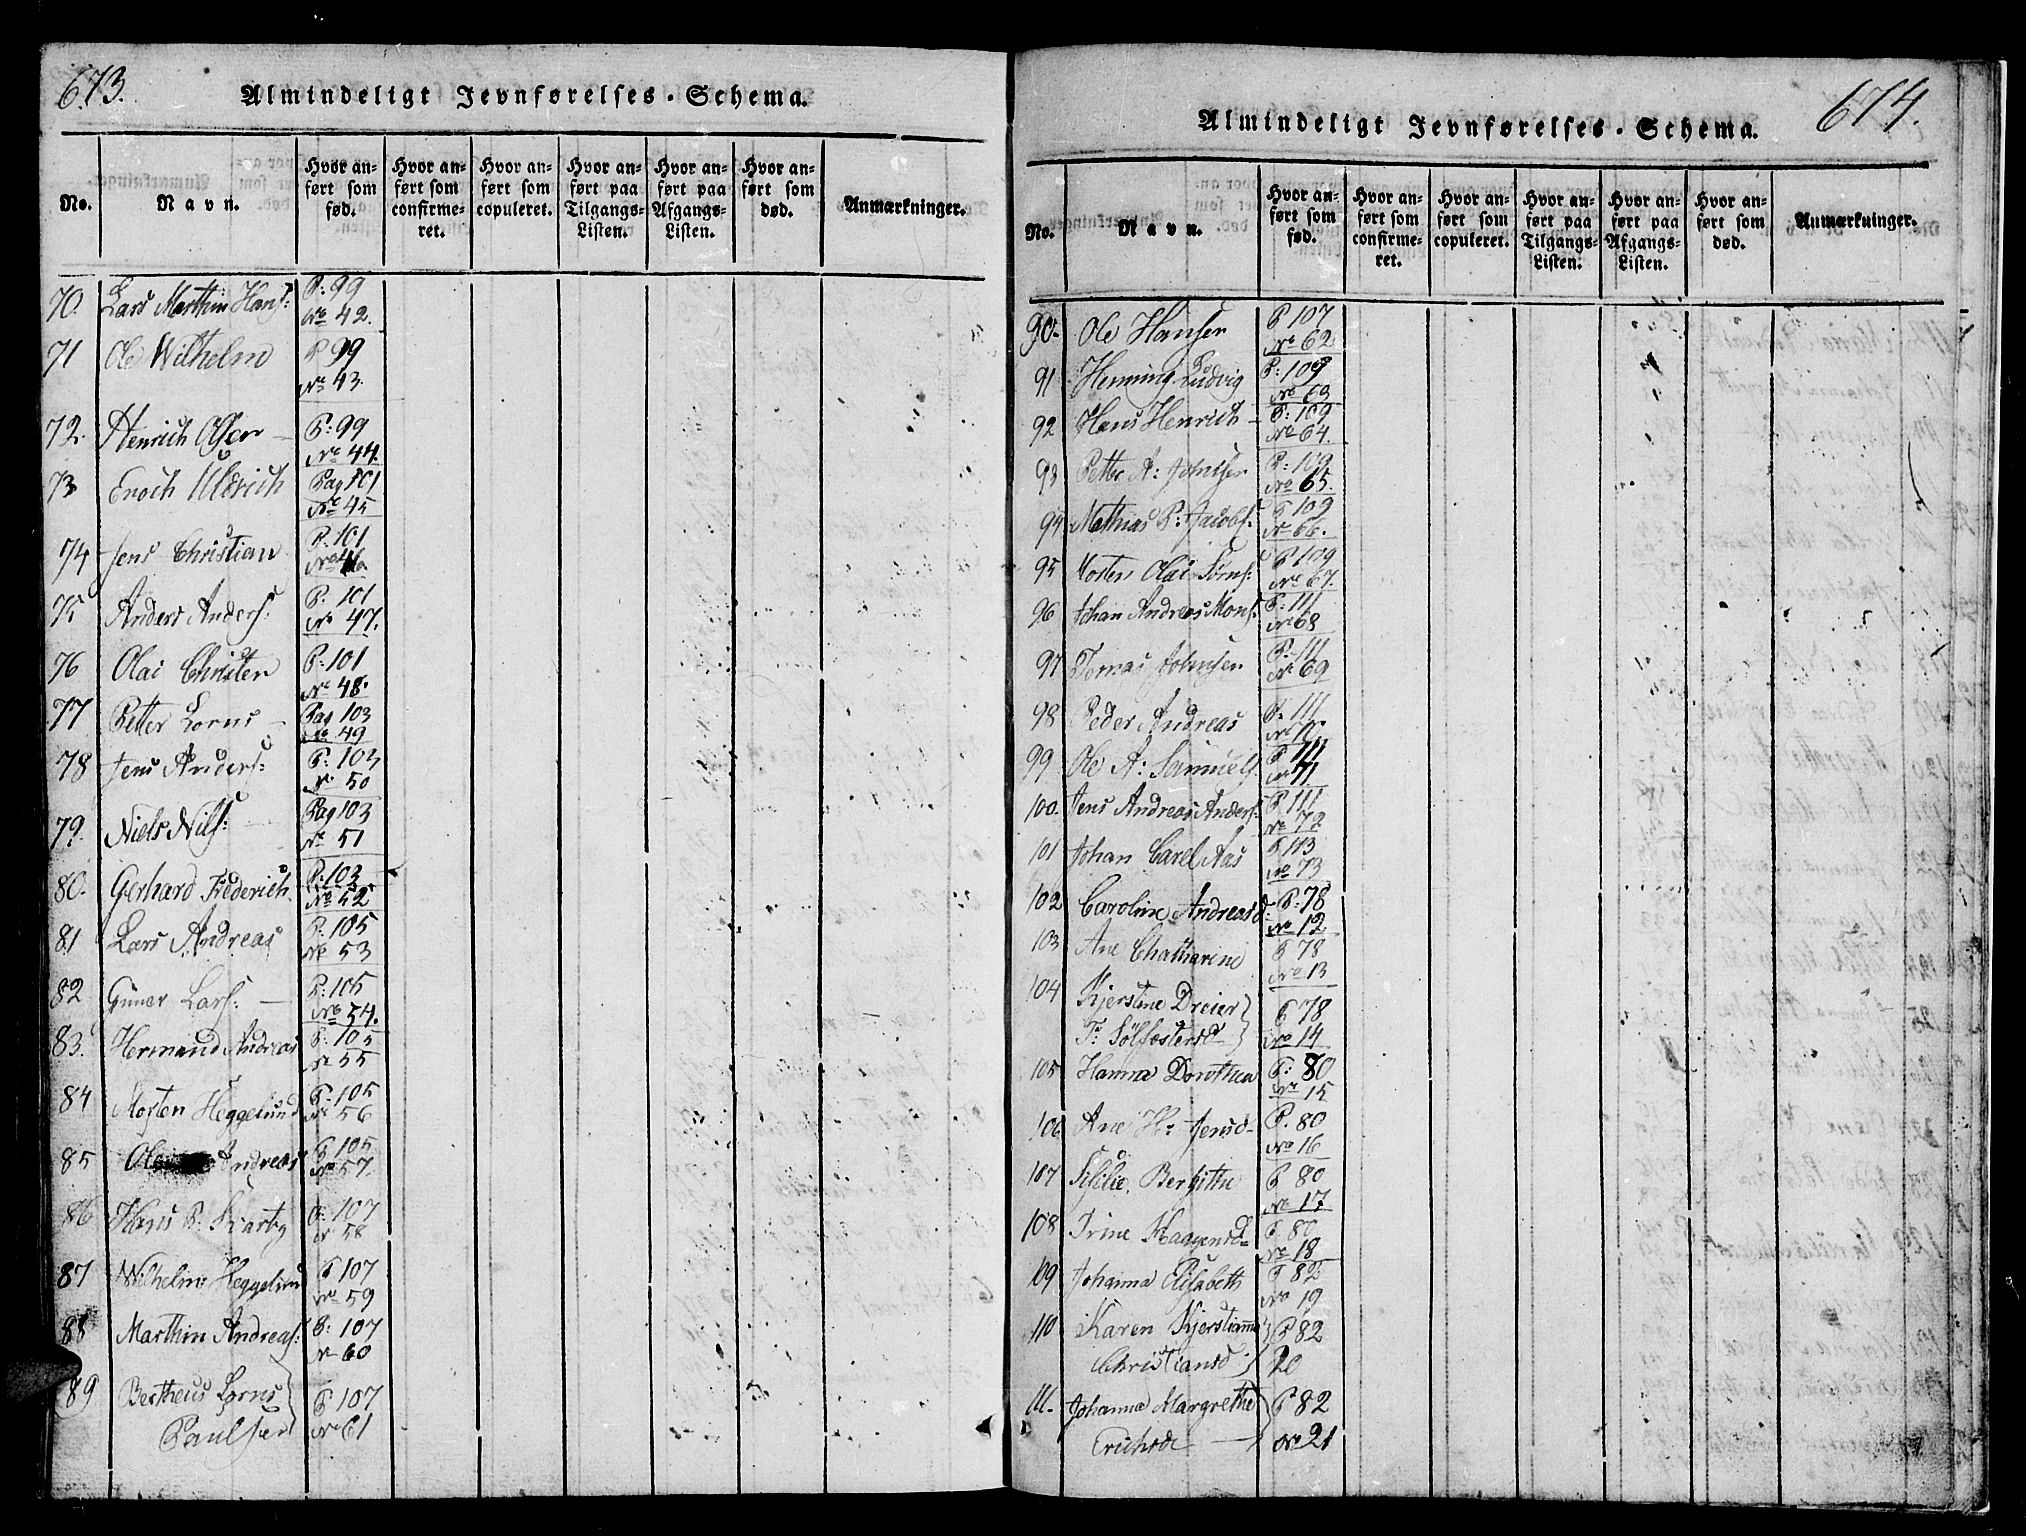 673.
Almindeligt Jevnførelses-Schema.
No.
Navn.
Hvor anført som fød.
Hvor anført som confirmeret.
Hvor anført som copuleret.
Hvor anført paa Tilgangs-Listen.
Hvor anført paa Afgangs-Listen.
Hvor anført som død.
Anmærkninger.
70. Lars Marthin Hans: P: 99
No 42.
71 Ole Wilhelm P 99
No 43.
72. Henrich Olsen P: 99
No 44.
73 Enoch Uldrich Pag 101
No 45
74 Jens Christian P. 101
No 46.
75 Anders Anders: P. 101
No 47.
76 Olai Christen P: 101
No 48.
77 Petter Lorns Pag 103
No 49
78 Jens Anders: P: 103
No 50
79. Niels Nils: Pag 103
No 51
80. Gerhard Frederich. P: 103
No 52
81 Lars Andreas P: 105
No 53
82 Gunar Lars: P: 105
No 54.
83. Hermand Andreas P: 105
No 55
84 Morten Heggelund P: 105
No 56
85 Ole Andreas P 105
No 57.
86 Hans P. P: 107
No 58
87 Wilhelm Heggelund P 107
No 59
88 Marthin Andreas: P: 107
No 60
89 Bertheus Lorns P 107
Paulsen No 61
674.
Almindeligt Jevnførelses-Schema.
No.
Navn.
Hvor anført som fød.
Hvor anført som confirmeret.
Hvor anført som copuleret.
Hvor anført paa Tilgangs-Listen.
Hvor anført paa Afgangs-Listen.
Hvor anført som død.
Anmærkninger.
90. Ole Hansen P 107
No 62
91 Henning Ludvig P: 109
No 63
92 Hans Henrich P: 109
No 64.
93 Petter A: Johnsen P: 109
No 65.
94 Mathias P: Jacobs: P 109
No 66.
95 Morten Olai P 109
No 67.
96 Johan Andreas Mons: P: 111
No 68
97 Tomas Johnsen P: 111
No 69
98 Peder Andreas P: 111
No 70
99 Ole A: Samuels P 111
No 71
100. Jens Andreas Anders: P 111
No 72
101 Johan Carel Aas P 113
No 73
102 Caroline Andreasd: P: 78
No 12
103 Ane Chatharine P 78
No 13
104 Kjerstine Dreier P 78
T: Sølfestersd No 14
105 Hanna Dorothea P: 80
No 15
106 Ane H: Jensd P. 80
No 16
107 Sililie Bergitte P 80
No 17
108 Trine Haagensd P 80
No 18
109 Johanna Elisabeth P 82
No 19
110 Karen Kjerstianna P 82
Christiansd 20
111. Johanna Margrethe P 82
Erichsd No 21